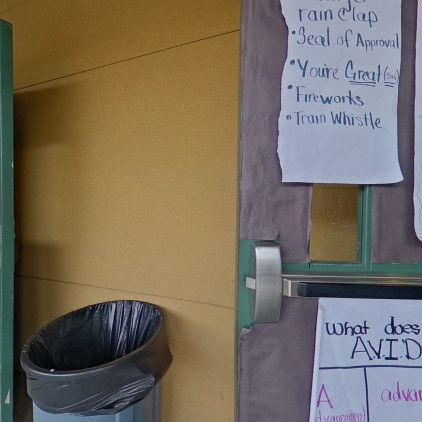 rain Clap
• Seal of Approval
• You're Great
• Fireworks
• Train Whistle
What does
A.V.I.D
A
advan
Advancement